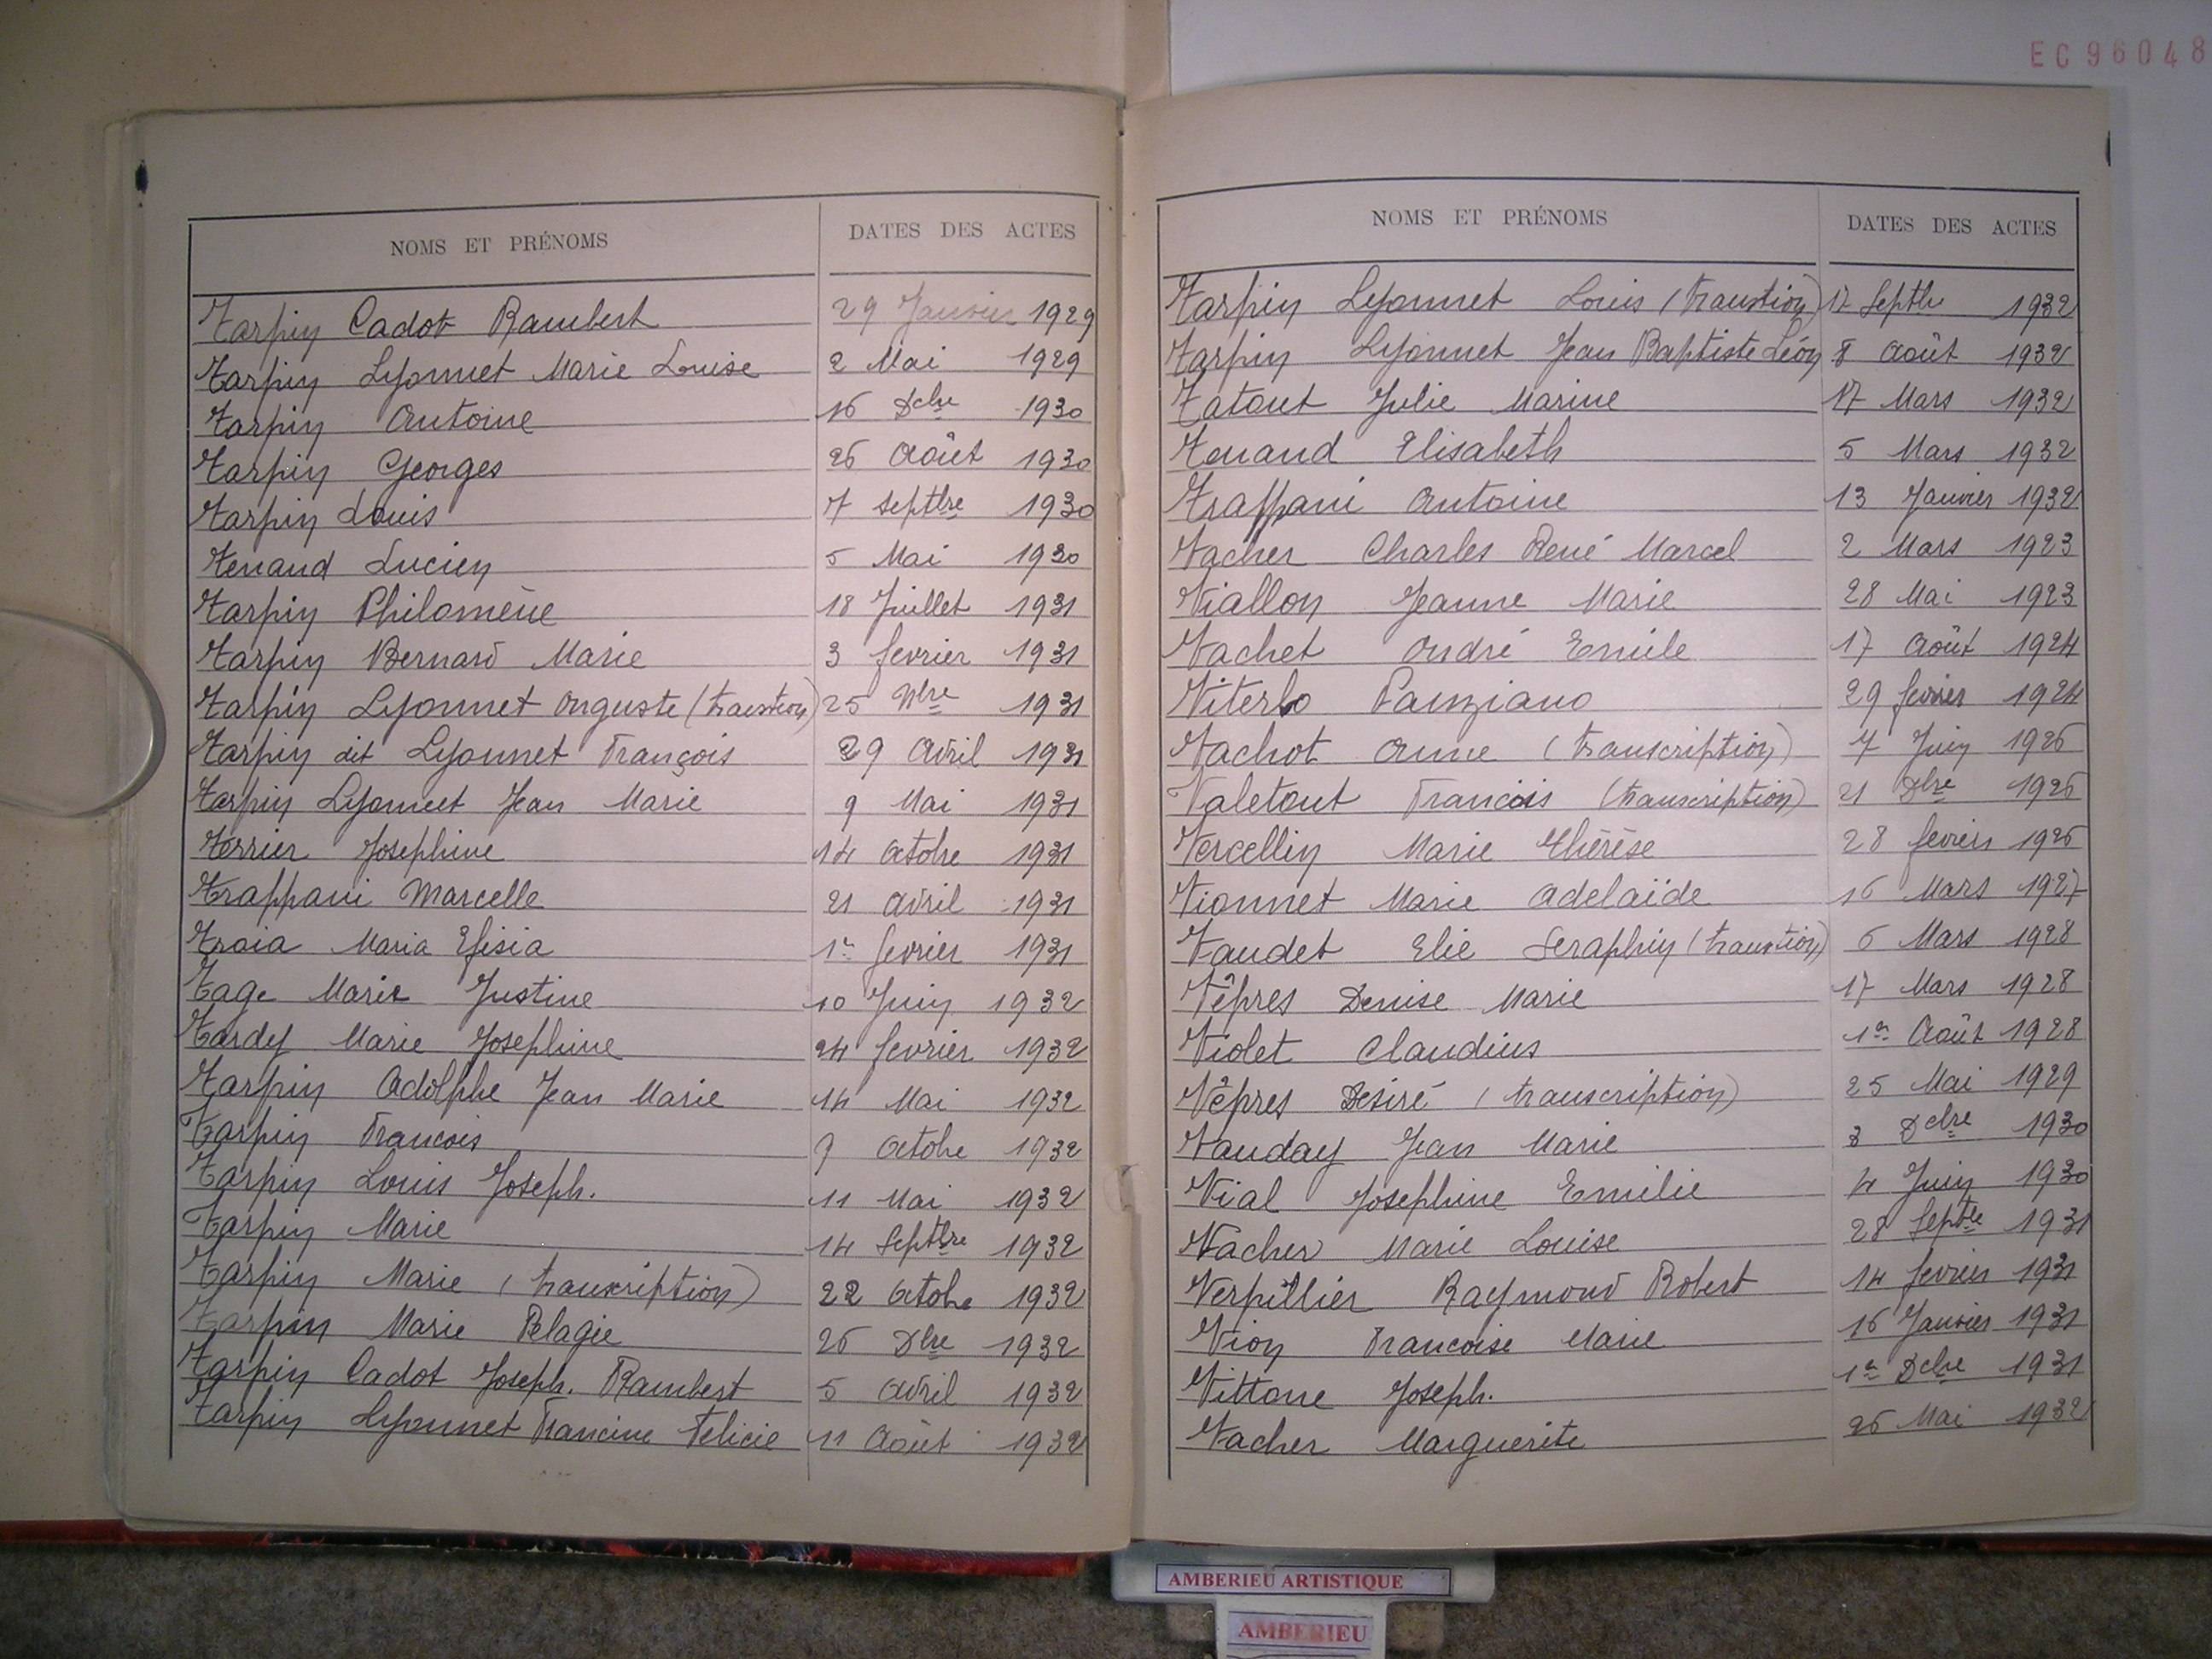 EC96048
NOMS ET PRÉNOMS DATES DES ACTES
Tarpin Cadot Rambert 29 Janvier 1929
Tarpin Lyonnet Marie Louise 2 Mai 1929
Tarpin Antoine 16 Dcbre 1930
Tarpin Georges 26 Août 1930
Tarpin Louis 7 Septbre 1930
Tenand Lucien 5 Mai 1930
Tarpin Philomène 18 Juillet 1931
Tarpin Bernard Marie 3 fevrier 1931
Tarpin Lyonnet Auguste (transtion) 25 Nbre 1931
Tarpin dit Lyonnet François 29 Avril 1931
Tarpin Lyonnet Jean Marie 9 Mai 1931
Terrier Josephine 14 Octobre 1931
Trappani Marcelle 21 avril 1931
Troia Maria Efisia 1er fevrier 1931
Tage Marie Justine 10 Juin 1932
Tardy Marie Josephine 24 fevrier 1932
Tarpin Adolphe Jean Marie 14 Mai 1932
Tarpin Francois 9 Octobre 1932
Tarpin Louis Joseph. 11 Mai 1932
Tarpin Marie 14 Septbre 1932
Tarpin Marie (transcription) 22 Octobre 1932
Tarpin Marie Pelagie 26 Dbre 1932
Tarpin Cadot Joseph. Rambert 5 Avril 1932
Tarpin Lyonnet Francine Felicie 11 Août 1932
NOMS ET PRÉNOMS DATES DES ACTES
Tarpin Lyonnet Louis (transtion) 17 Septbre 1932
Tarpin Lyonnet Jean Baptiste Léon 8 Août 1932
Tatout Julie Marine 17 Mars 1932
Tenand Elisabeth 5 Mars 1932
Trappani Antoine 13 Janvier 1932
Vacher Charles René Marcel 2 Mars 1923
Viallon Jeanne Marie 28 Mai 1923
Vachet André Emile 17 Août 1924
Viterbo 29 fevrier 1924
Vachot Anne (transcription) 7 Juin 1926
Valetout Francois (transcription) 21 Dbre 1926
Vercellin Marie Thérèse 28 fevrier 1926
Vionnet Marie Adelaïde 16 Mars 1927
Vaudet Elie Seraphin (transtion) 6 Mars 1928
Vêpres Denise Marie 17 Mars 1928
Violet Claudius 1er Août 1928
Vêpres Désiré (transcription) 25 Mai 1929
Vauday Jean Marie 3 Dcbre 1930
Vial Josephine Emilie 4 Juin 1930
Vacher Marie Louise 28 Septbre 1931
Verpillier Raymond Robert 14 fevrier 1931
Vion Francoise Marie 16 Janvier 1931
Vittone Joseph. 1er Dcbre 1931
Vacher Marguerite 26 Mai 1932
AMBERIEU ARTISTIQUE
AMBERIEU